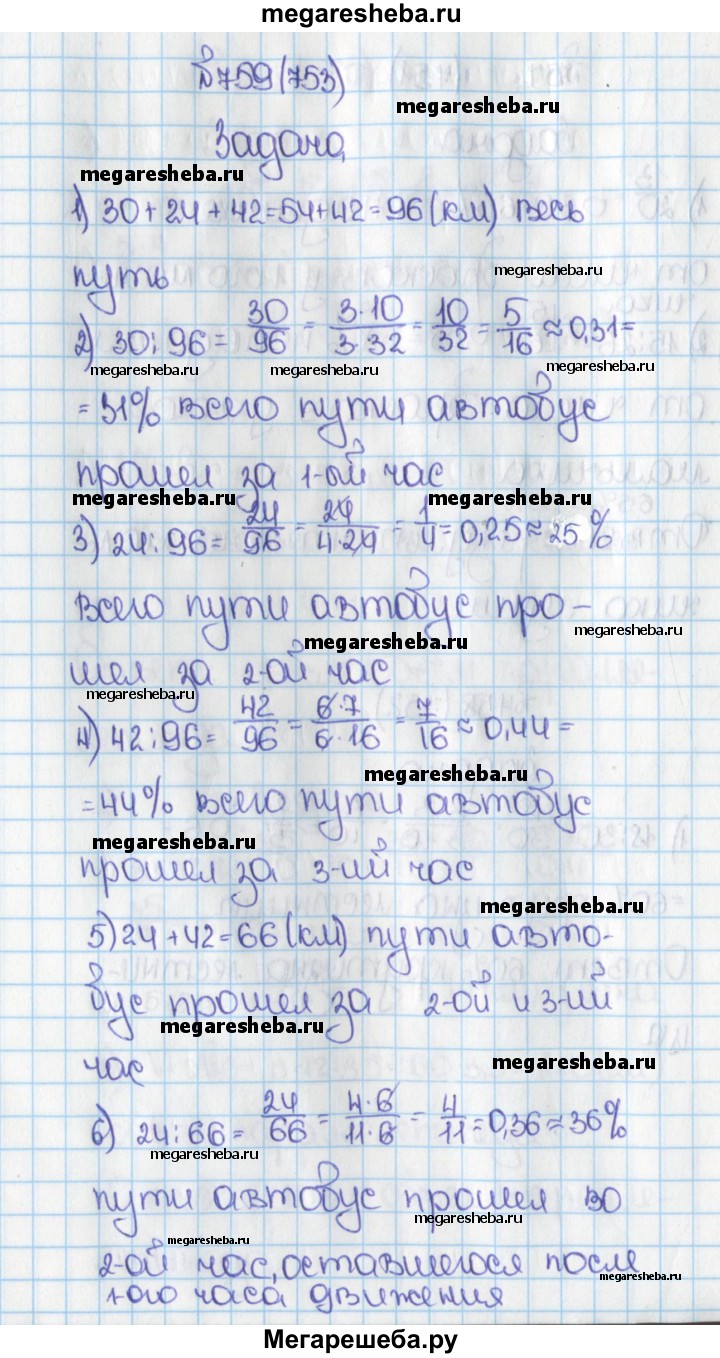 megaresheba.ru
№759(753)
megaresheba.ru
Задача
megaresheba.ru
1) 30+24+42=54+42=96(км) весь
путь
megaresheba.ru
2) 30:96= 30/96 = 3·10/3·32 = 10/32 = 5/16 ≈ 0,31=
megaresheba.ru megaresheba.ru
=31% всего пути автобус
прошел за 1-ой час
megaresheba.ru megaresheba.ru
3) 24:96= 24/96 = 24/4·24 = 1/4 = 0,25 ≈ 25%
всего пути автобус про-
megaresheba.ru megaresheba.ru
шел за 2-ой час
megaresheba.ru
4) 42:96= 42/96 = 6·7/6·16 = 7/16 ≈ 0,44=
megaresheba.ru
=44% всего пути автобус
megaresheba.ru
прошел за 3-ий час
megaresheba.ru
5) 24+42=66(км) пути авто-
бус прошел за 2-ой и 3-ий
megaresheba.ru
час
megaresheba.ru
6) 24:66= 24/66 = 4·6/11·6 = 4/11 = 0,36 ≈ 36%
megaresheba.ru
пути автобус прошел во
megaresheba.ru
megaresheba.ru
2-ой час, оставшегося после
megaresheba.ru
1-ого часа движения
Мегарешеба.ру